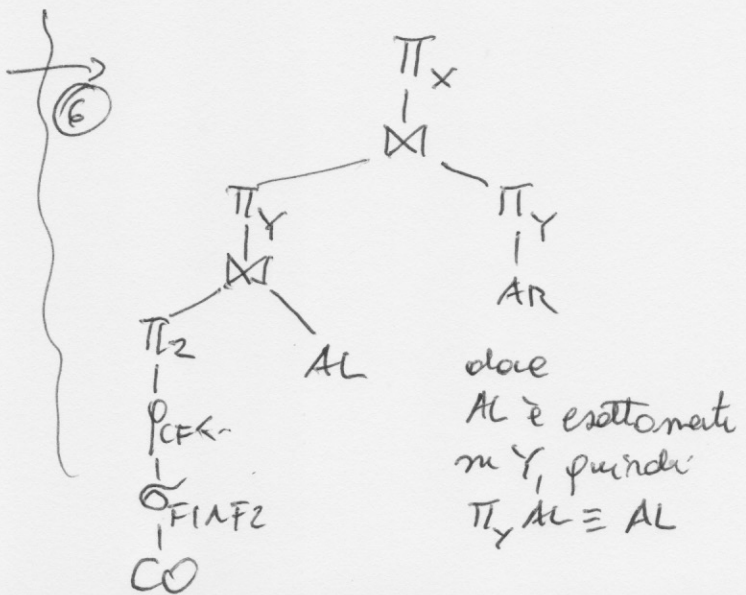 6
Π X
⋈
Π Y
Π Y
⋈
AR
Π Z
AL
ρ CF←
σ F1∧F2
CO
dove
AL è esattamente
su Y, quindi
Π Y AL ≡ AL